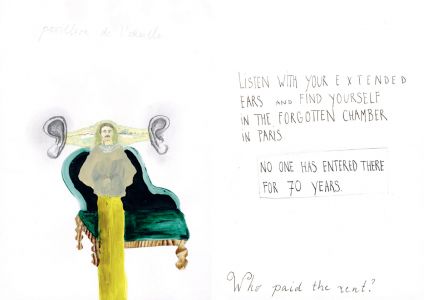 pavillon de l'oreille
LISTEN WITH YOUR EXTENDED
EARS AND FIND YOURSELF
IN THE FORGOTTEN CHAMBER
IN PARIS
NO ONE HAS ENTERED THERE
FOR 70 YEARS.
Who paid the rent?